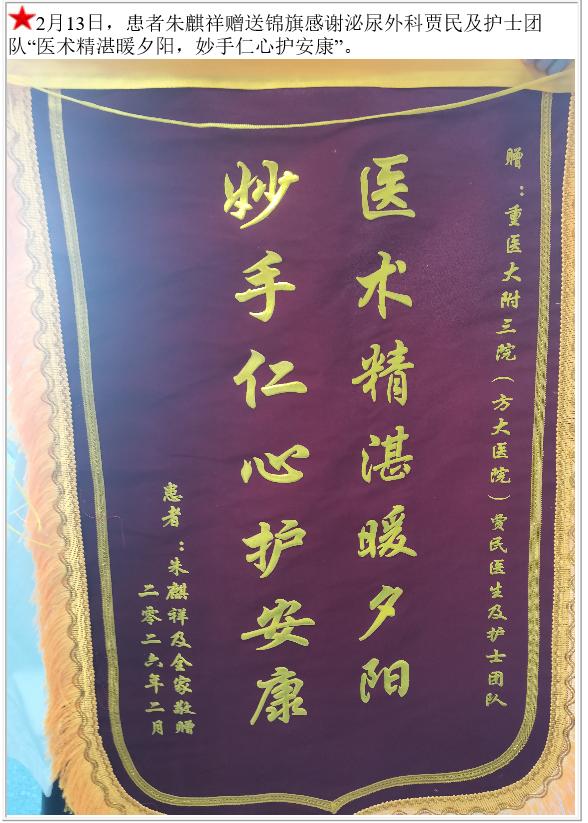 ★2月13日，患者朱麒祥赠送锦旗感谢泌尿外科贾民及护士团
队“医术精湛暖夕阳，妙手仁心护安康”。
赠：重医大附三院（方大医院）贾民医生及护士团队
医术精湛暖夕阳
妙手仁心护安康
患者：朱麒祥及全家敬赠
二零二六年二月